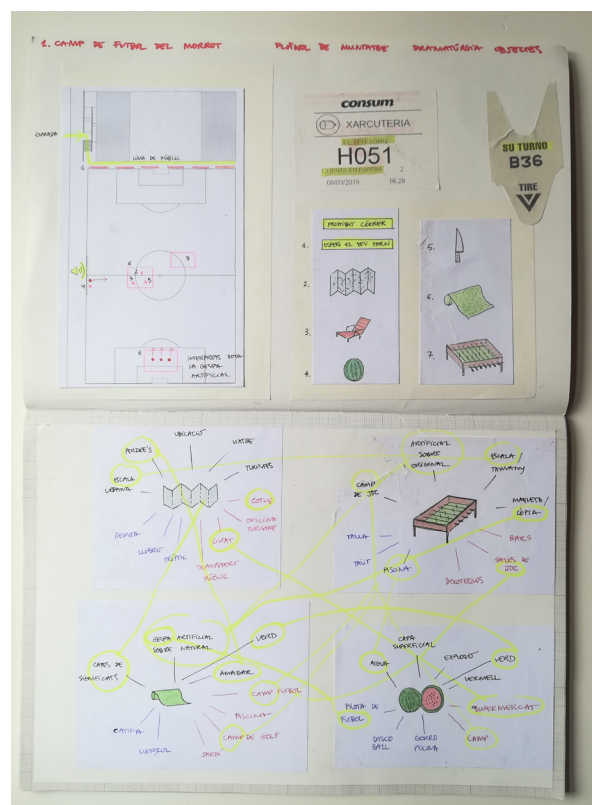 1. CAMP DE FUTBOL DEL MORROT
PLÀNOL DE MUNTATGE
DRAMATÚRGIA OBJECTES
ENTRADA
LÍNIA DE PÚBLIC
1
6
7
2
3
5
4
6
INFERMERES SOTA
LA GESPA
ARTIFICIAL
consum
XARCUTERIA
H051
2
08/01/2019
16:28
SU TURNO
B36
TIRE
1.
PROHIBIT CÓRRER
ESPERI EL SEU TORN
2.
3.
4.
5.
6.
7.
UBICACIÓ
VIATGE
TURISTES
COTXE
OFICINA
TURISME
CIUTAT
TRANSPORT
PÚBLIC
TRÍPTIC
LLIBRE
REVISTA
ESCALA
URBANA
ARTIFICIAL
SOBRE
ORIGINAL
ESCALA /
TAMANY
MAQUETA /
CÒPIA
BARS
SALES DE
JOC
DISCOTEQUES
PISCINA
TAÜT
TAULA
CAMP
DE JOC
GESPA ARTIFICIAL
SOBRE NATURAL
VERD
AMAGAR
CAMP FUTBOL
PISCINA
CAMP DE GOLF
JARDÍ
CATIFA
CAPES DE
SIGNIFICATS
CAPA
SUPERFICIAL
EXPLOSIÓ
VERD
VERMELL
SUPERMERCAT
CAMP
GORRO
PISCINA
DISCO
BALL
PILOTA DE
FUTBOL
AIGUA